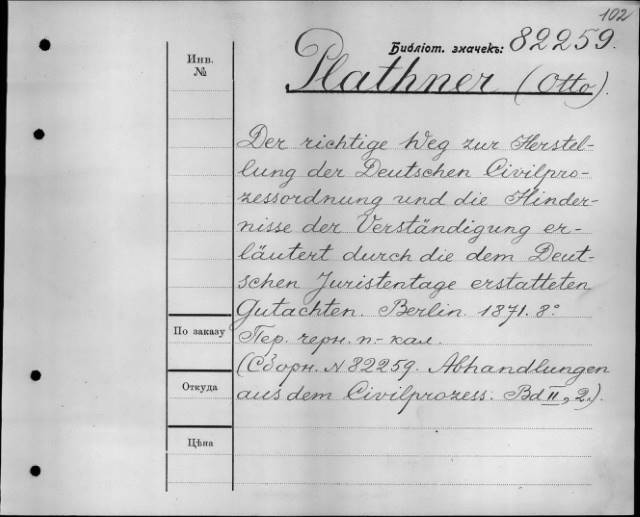 102
Библіот. значекъ: 82259.
Инв.
№
Plathner (Otto).
Der richtige Weg zur Herstel-
lung der Deutschen Civilpro-
zessordnung und die Hinder-
nisse der Verständigung er-
läutert durch die dem Deut-
schen Juristentage erstatteten
Gutachten. Berlin. 1871. 8º
По заказу
Пер. черн. п.-кал.
(Сборн. N 82259. Abhandlungen
Откуда
aus dem Civilprozess. Bd II, 2.).
Цѣна